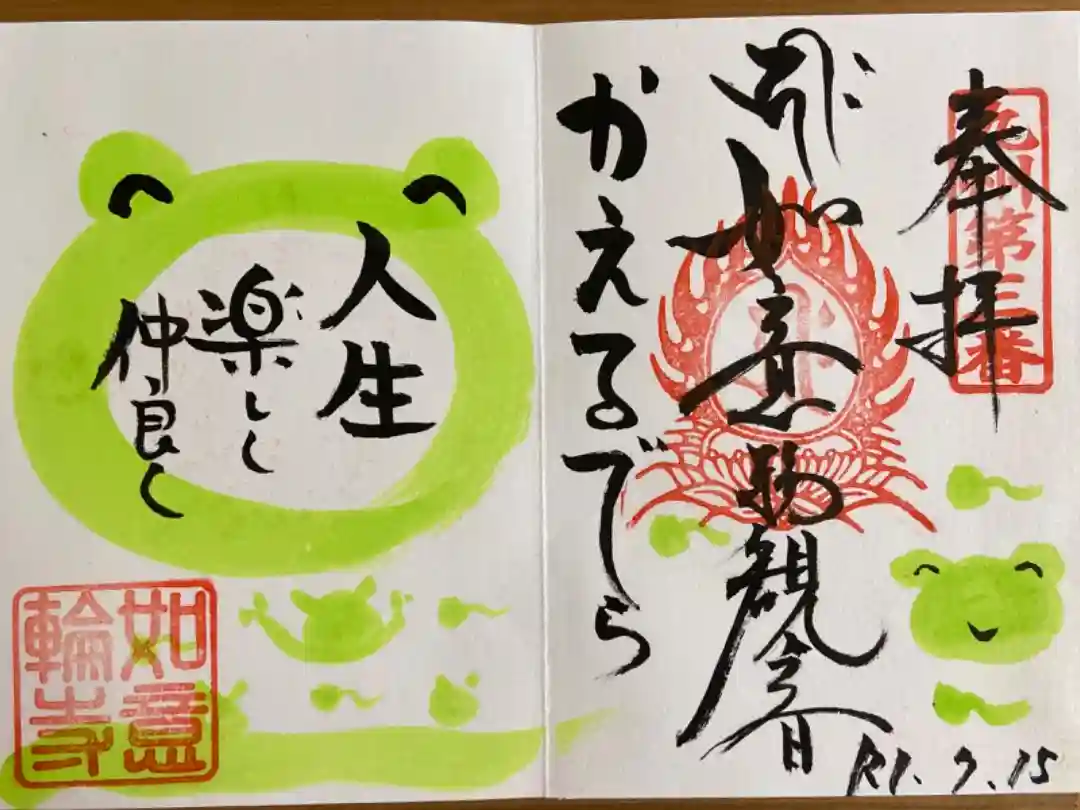 九州第三番
奉拝
如意輪観音
かえるでら
R1.9.15
人生
楽しく
仲良く
如意
輪寺